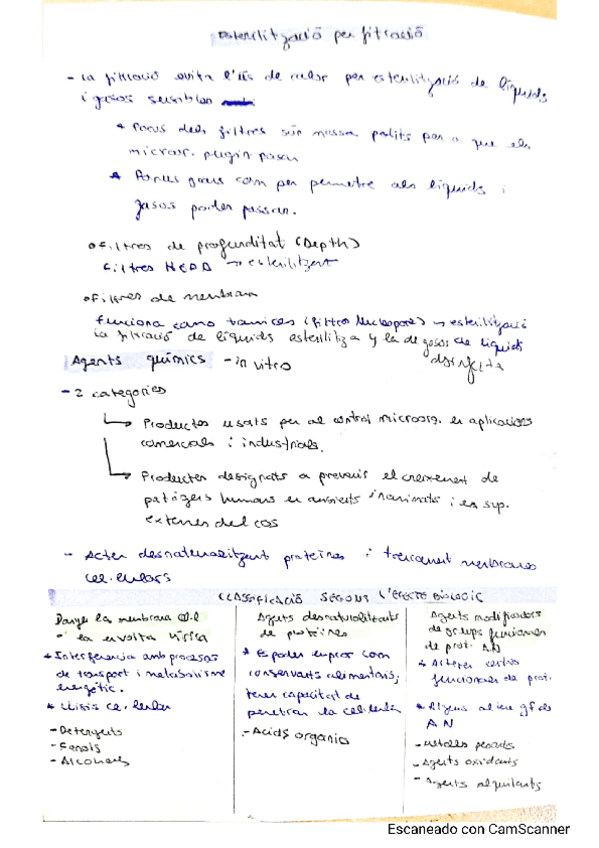 Esterilització per filtració
- La filtració evita l'ús de calor per esterilització de líquids
i gasos sensibles
* Porus dels filtres són massa petits per a que els
microor. puguin passar
* Porus grans com per permetre als líquids i
gasos poder passar.
o Filtres de profunditat (Depth)
Filtres HEPA → esterilitzant
o Filtres de membrana
funciona como tamices (filtros Nucleopore) → esterilització
la filtració de líquids esterilitza y la de gasos de líquids
desinfecta
Agents químics - in vitro
- 2 categories
Productes usats per al control microorg. en aplicacions
comercials i industrials.
Productes designats a prevenir el creixement de
patògens humans en ambients inanimats i en sup.
externes del cos
- Acten desnaturalitzant proteïnes i trencant membranes
cel·lulars
CLASSIFICACIÓ SEGONS L'EFECTE BIOLÒGIC
Danys la membrana cel·l
o la envolta vírica
* Interferencia amb procesos
de transport i metabolisme
energètic.
* Lisis cel·lular
- Detergents
- Fenols
- Alcohols
Agents desnaturalitzants
de proteïnes
* Es poden emprar com
conservants alimentaris,
tenen capacitat de
penetrar la cel·lula
- Àcids orgànics
Agents modificadors
de grups funcionals
de prot. AN
* Alteren
funcionals de prot.
gf de
AN
- Metalls pesants
- Agents oxidants
- Agents alquilants
Escaneado con CamScanner